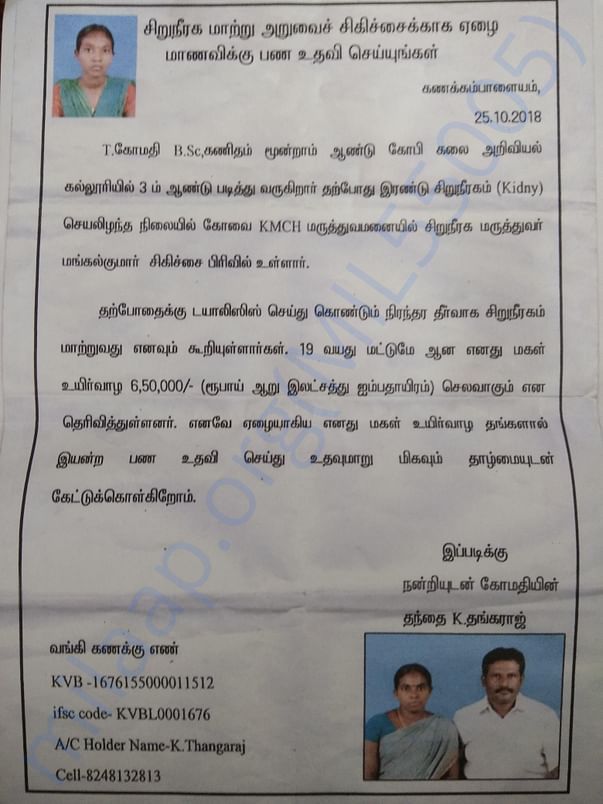 சிறுநீரக மாற்று அறுவைச் சிகிச்சைக்காக ஏழை
மாணவிக்கு பண உதவி செய்யுங்கள்
கணக்கம்பாளையம்,
25.10.2018
T.கோமதி B.Sc,கணிதம் மூன்றாம் ஆண்டு கோபி கலை அறிவியல்
கல்லூரியில் 3 ம் ஆண்டு படித்து வருகிறார் தற்போது இரண்டு சிறுநீரகம் (Kidny)
செயலிழந்த நிலையில் கோவை KMCH மருத்துவமனையில் சிறுநீரக மருத்துவர்
மங்கல்குமார் சிகிச்சை பிரிவில் உள்ளார்.
தற்போதைக்கு டயாலிஸிஸ் செய்து கொண்டும் நிரந்தர தீர்வாக சிறுநீரகம்
மாற்றுவது எனவும் கூறியுள்ளார்கள். 19 வயது மட்டுமே ஆன எனது மகள்
உயிர்வாழ 6,50,000/- (ரூபாய் ஆறு இலட்சத்து ஐம்பதாயிரம்) செலவாகும் என
தெரிவித்துள்ளனர். எனவே ஏழையாகிய எனது மகள் உயிர்வாழ தங்களால்
இயன்ற பண உதவி செய்து உதவுமாறு மிகவும் தாழ்மையுடன்
கேட்டுக்கொள்கிறோம்.
இப்படிக்கு
நன்றியுடன் கோமதியின்
தந்தை K.தங்கராஜ்
வங்கி கணக்கு எண்
KVB -1676155000011512
ifsc code- KVBL0001676
A/C Holder Name-K.Thangaraj
Cell-8248132813
milaap.org(MIL55005)